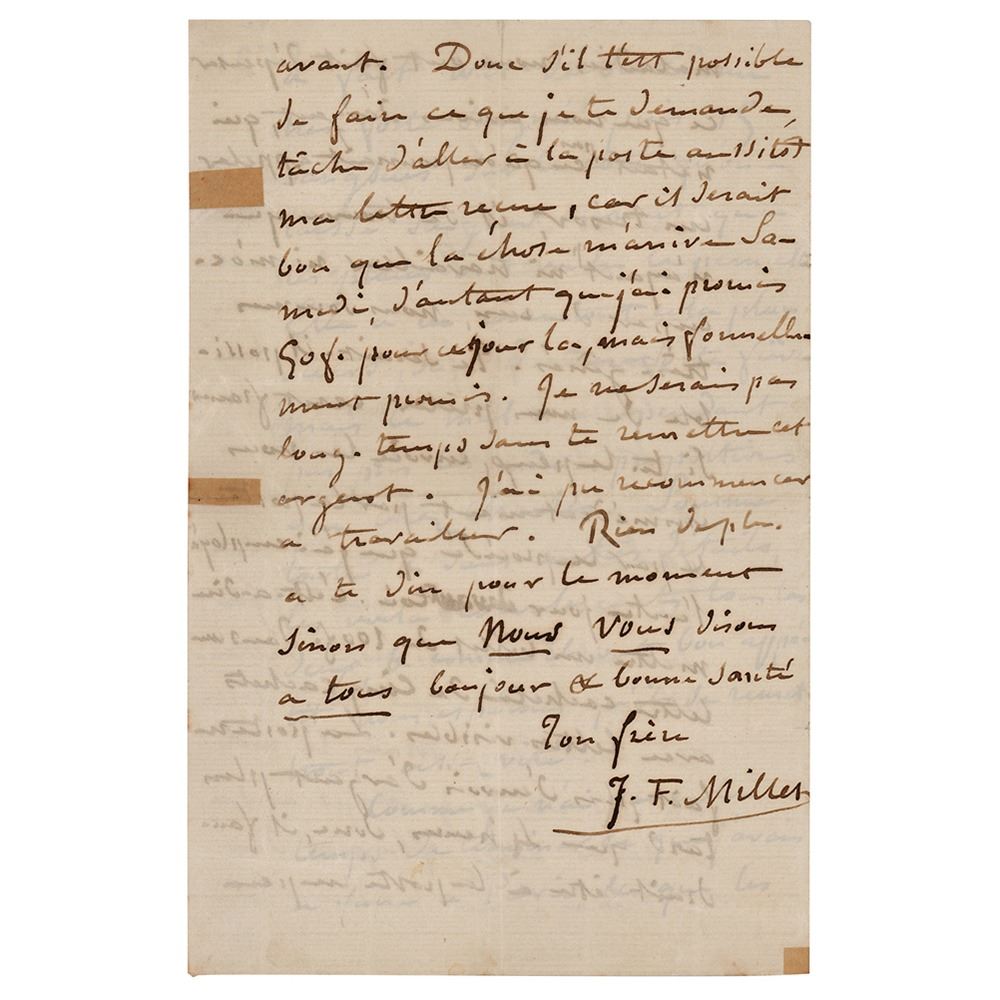 avant. Donc s'il t'est possible
de faire ce que je te demande,
tâche d'aller à la poste aussitôt
ma lettre reçue, car il serait
bon que la chose m'arrive Sa-
medi, d'autant que j'ai promis
pour ce jour la, mais formelle-
ment promis. Je ne serais pas
long-temps sans te remettre cet
argent. J'ai pu recommencer
a travailler. Rien de plus
a te dire pour le moment
sinon que Nous vous disons
a tous bonjour & bonne santé
Ton frère
J. F. Millet